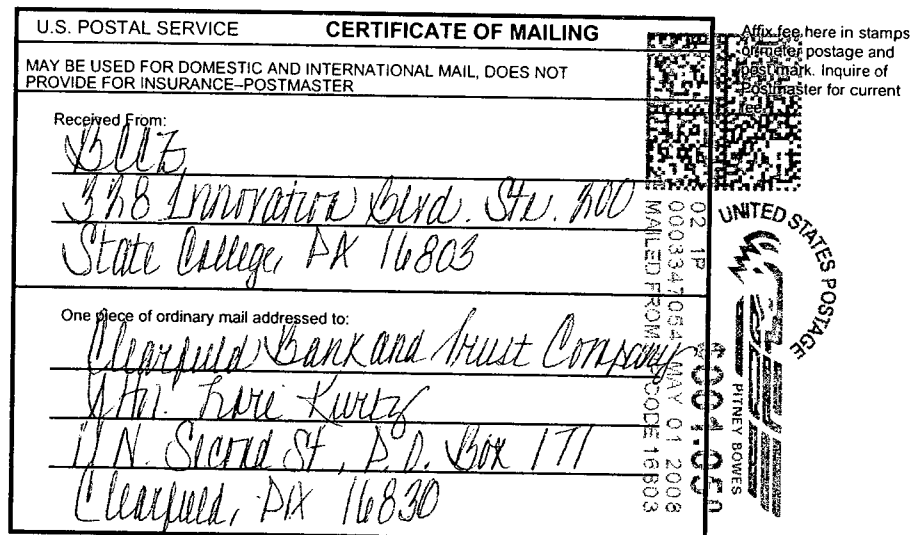 U.S. POSTAL SERVICE CERTIFICATE OF MAILING
MAY BE USED FOR DOMESTIC AND INTERNATIONAL MAIL, DOES NOT
PROVIDE FOR INSURANCE–POSTMASTER
Affix fee here in stamps
or meter postage and
post mark. Inquire of
Postmaster for current
fee.
Received From:
BCCZ
328 Innovation Blvd. Ste. 200
State College, PA 16803
One piece of ordinary mail addressed to:
Clearfield Bank and Trust Company
Attn. Lori Kurtz
11 N. Second St, P.O. Box 171
Clearfield, PA 16830
UNITED STATES POSTAGE
PITNEY BOWES
02 1P
0003347054 MAY 01 2008
MAILED FROM ZIP CODE 16803